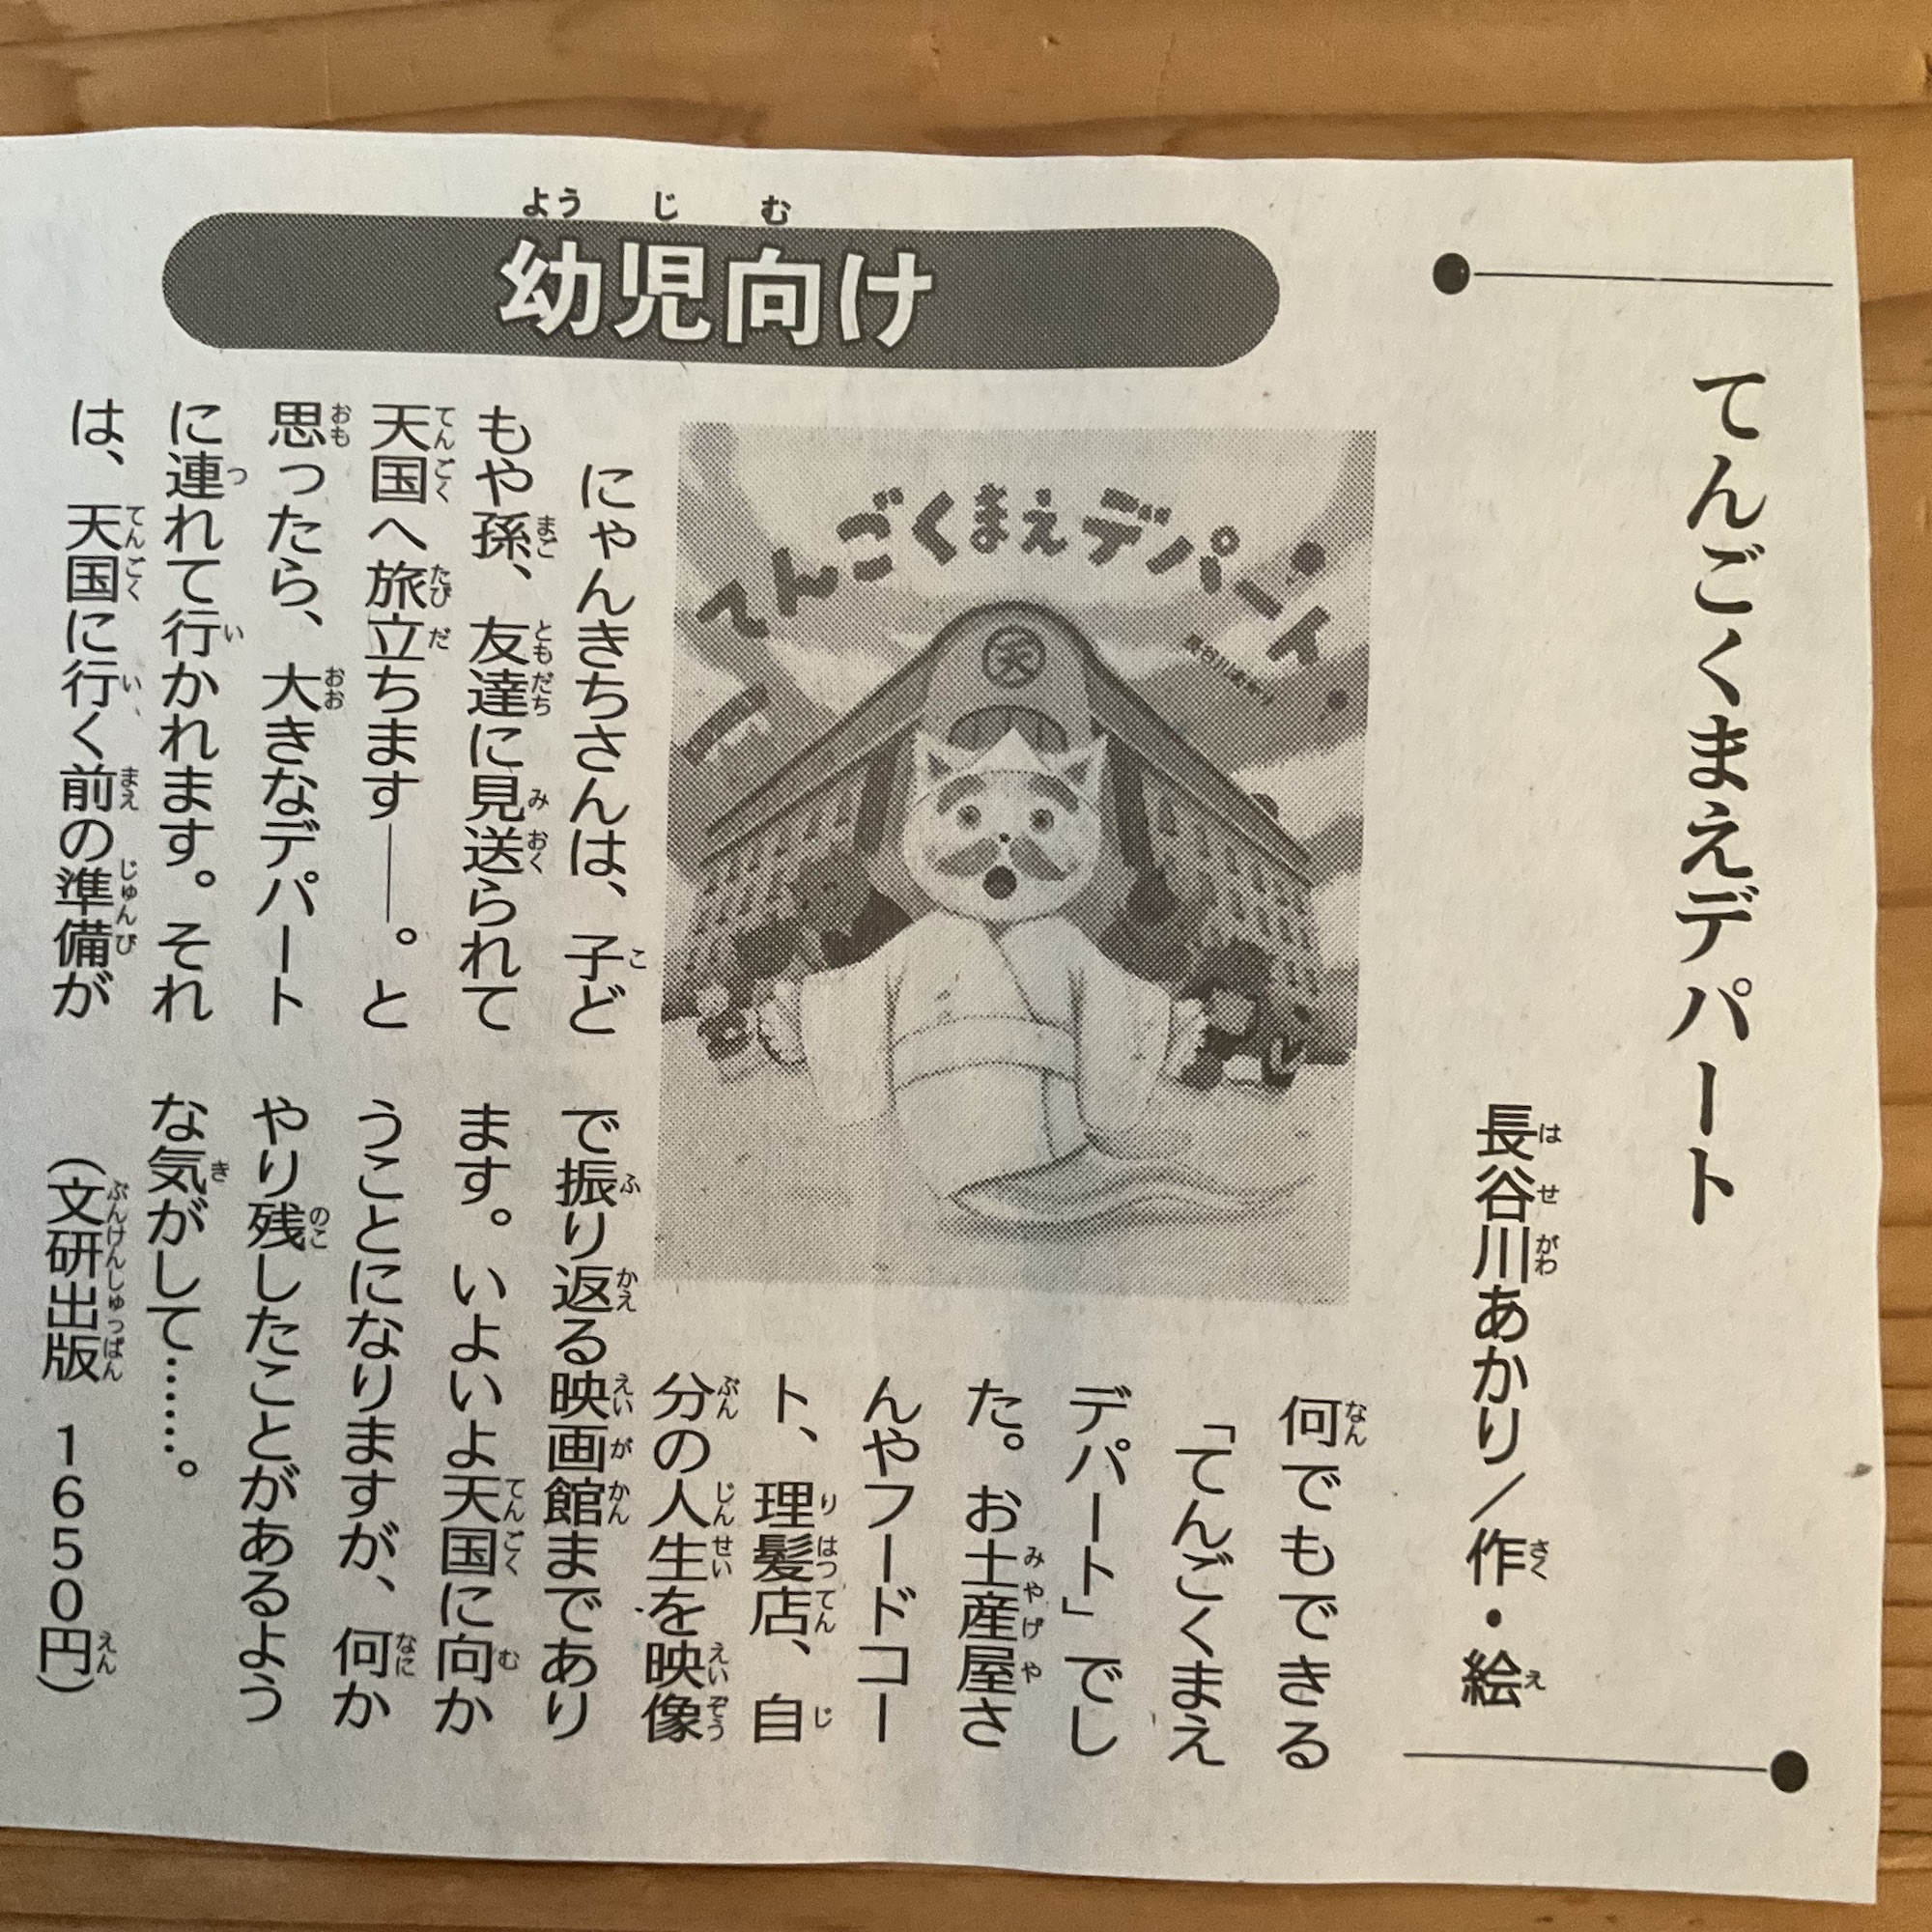 てんごくまえデパート
長谷川あかり/作・絵
幼児向け
てんごくまえデパート
天
にゃんきちさんは、子ど
もや孫、友達に見送られて
天国へ旅立ちます――。と
思ったら、大きなデパート
に連れて行かれます。それ
は、天国に行く前の準備が
何でもできる
「てんごくまえ
デパート」でし
た。お土産屋さ
んやフードコー
ト、理髪店、自
分の人生を映像
で振り返る映画館まであり
ます。いよいよ天国に向か
うことになりますが、何か
やり残したことがあるよう
な気がして……。
(文研出版 1650円)